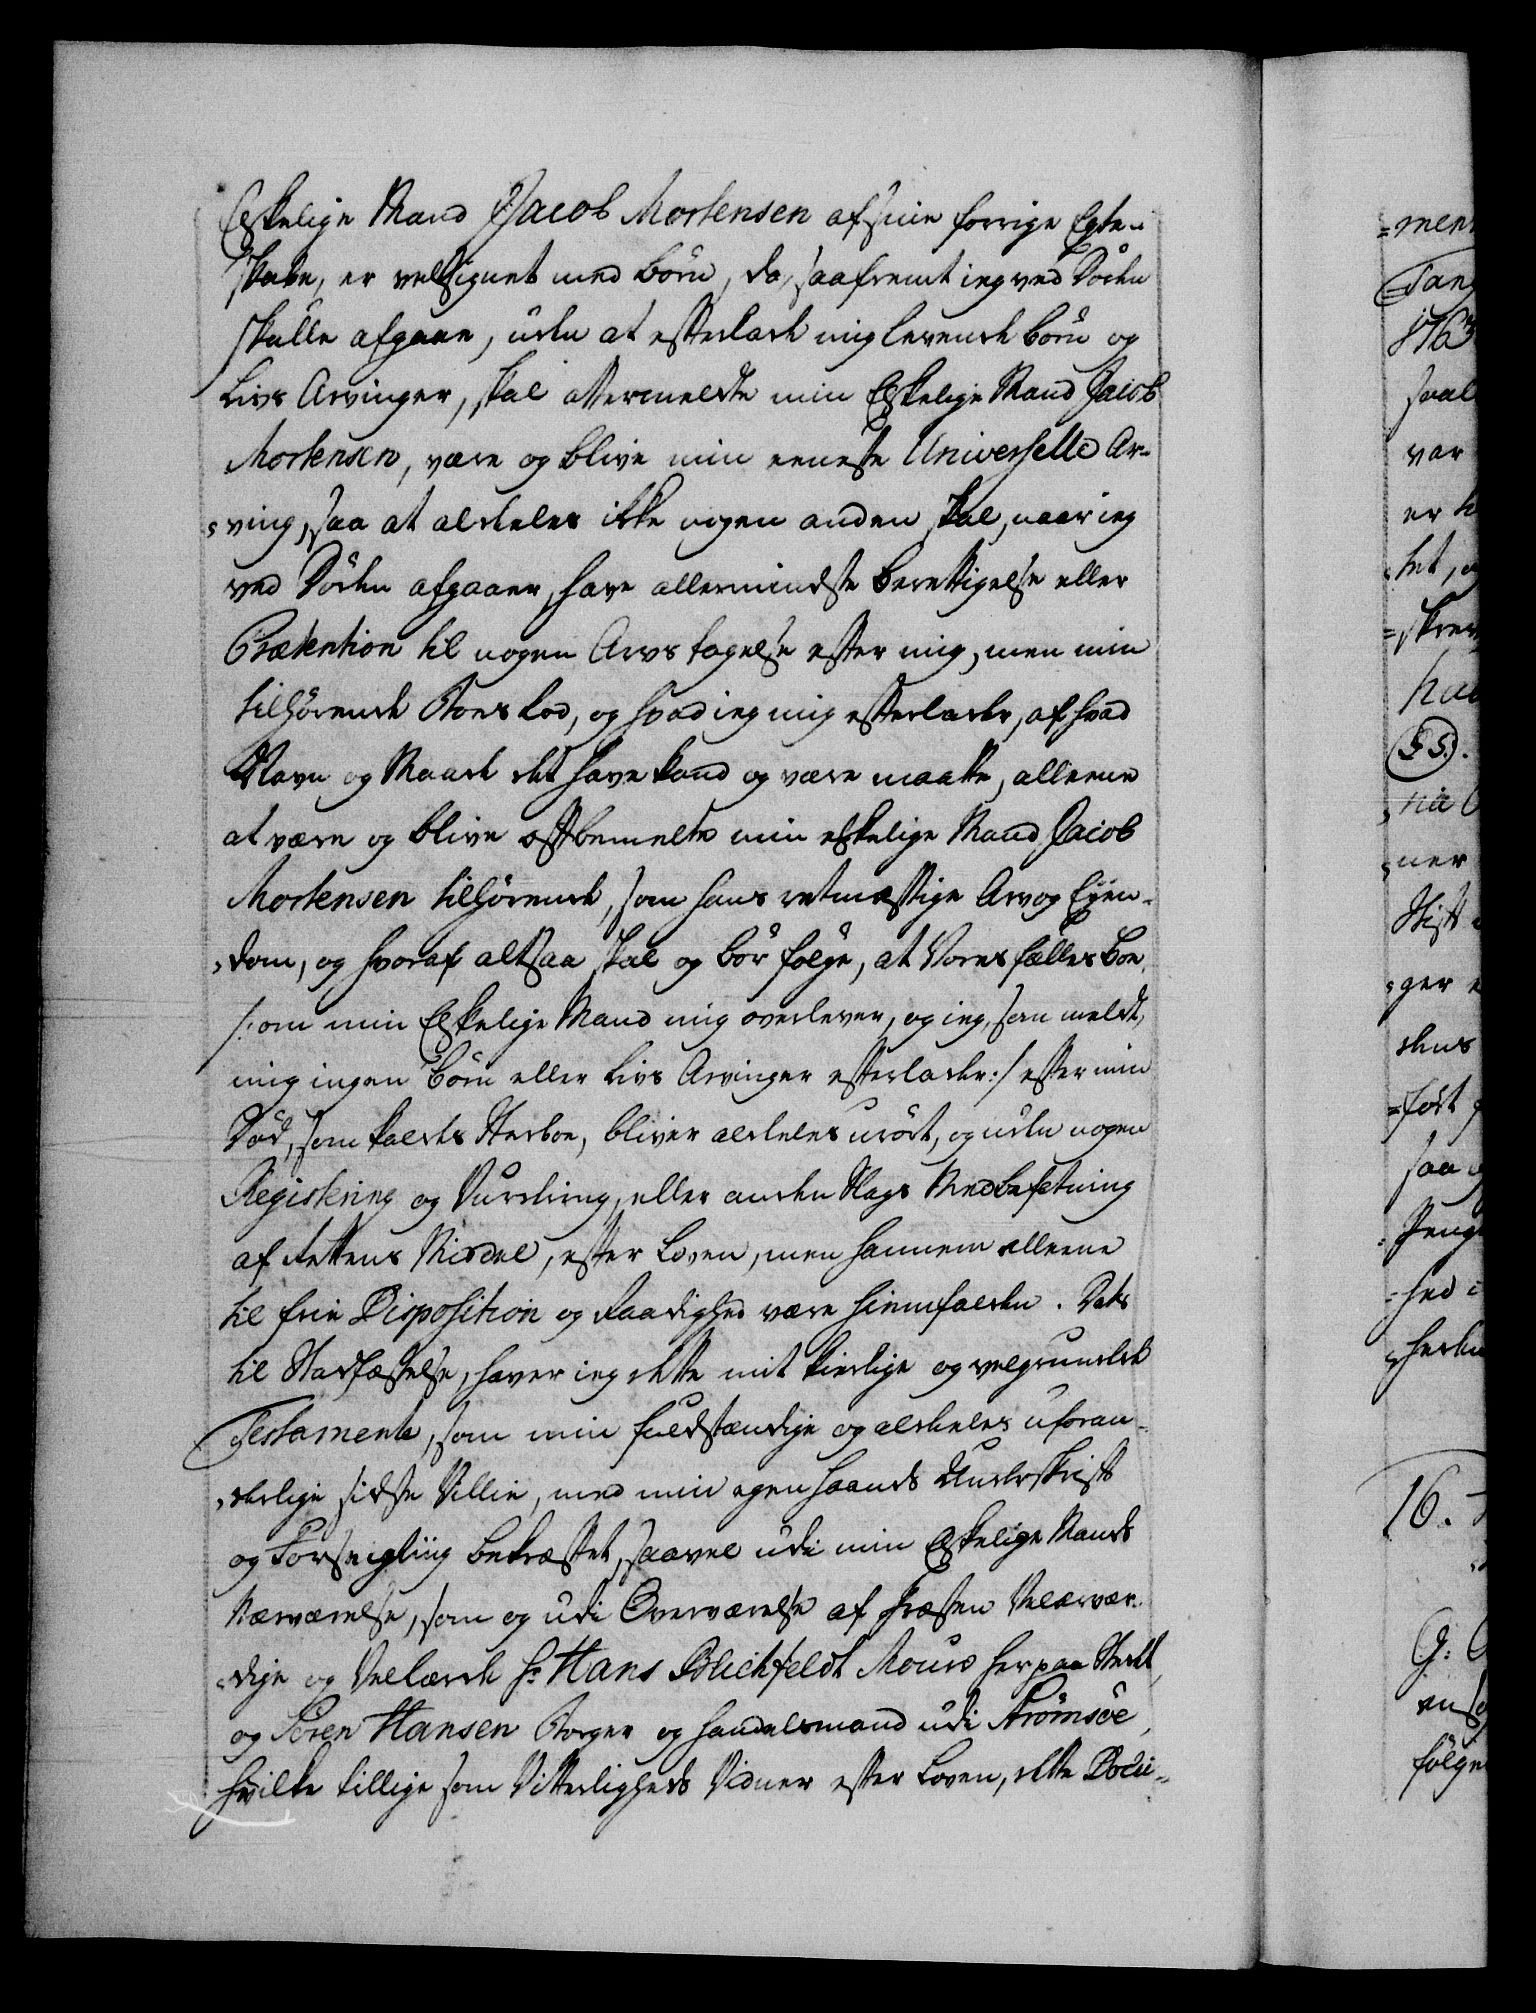 Elskelige Mand Jacob Mortensen af sine forrige Egte-
skabe, er velsignet med børn, da, saafremt ieg ved Døden
skulle afgaae, uden at efterlade mig levende børn og
Livs Arvinger, skal ottermeldte min Elskelige Mand Jacob
Mortensen, være og blive min eeneste Universelle Ar-
ving, saa at aldeles ikke nogen anden skal, naar ieg
ved Døden afgaaer, have allermindste berettigelse eller
Prætention til nogen Arvs tagelse efter mig, men min
tilhørende Boes Lod, og hvad ieg mig efterlader, af hvad
Navn og Maade det have kand og være maatte, alleene
at være og blive oftbemelte min elskelige Mand Jacob
Mortensen tilhørende, som hans retmæssige Arv og Eÿen-
dom, og hvoraf altsaa skal og bør følge, at Vores fælles Boe
/: om min Elskelige Mand mig overlever, og ieg, som meldt,
mig ingen Børn eller Livs Arvinger efterlader :/ efter min
Død, som kaldes Sterboe, bliver aldeles urørt, og uden nogen
Registering og Vurdering, eller anden Slags Medbefatning
af Rettens Middel, efter Loven, men hannem alleene
til frie Disposition og Raadighed være hiemfalden. Dets
til Stadfæstelse, haver ieg dette mit kierlige og velgrundede
Testamente, som min fuldstændige og aldeles uforan-
derlige sidste Villie, med min egen haands Underskrift
og Forseigling bekræftet, saavel udi min Elskelige Mands
Nærværelse, som og udi Overværelse af Præsten Velærvær-
dige og Vellærde Hr Hans Blichfeldt Mouro her paa Stedet,
og Søren Hansen Borger og Handelsmand udi Strømsøe,
hvilke tillige som Vitterligheds Vidner efter Loven, dette Docu-